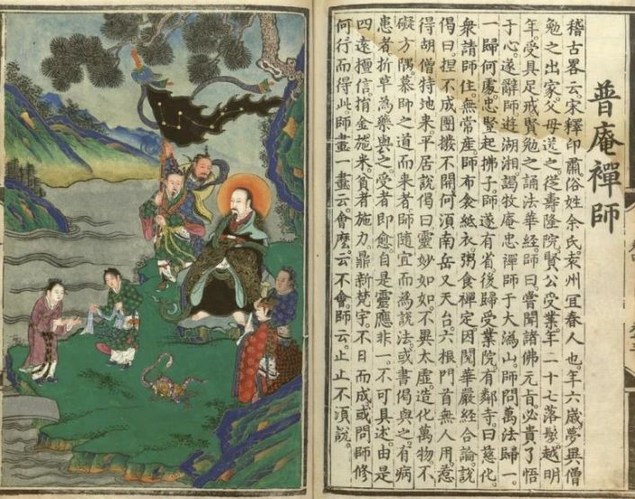 普庵禪師
稽古畧云宋釋印肅俗姓余氏袁州宜春人也年六歲夢異僧
勉之出家父母送之從壽隆院賢公受業年二十七落髮越明
年受具足戒賢勉之誦法華經師曰嘗聞諸佛元旨必貴了悟
于心遂辭師遊湖湘謁牧庵忠禪師于大溈山師問萬法歸一
一歸何處忠豎起拂子師遂有省後歸受業院有鄰寺曰慈化
衆請師住無常産師布衾紙衣粥食禪定因閱華嚴經合論說
偈曰揑不成團撥不開何須南岳又天台六根門首無人用惹
得胡僧特地來平居說偈曰靈妙如如不異太虛造化萬物不
礙方隅慕師之道而來者師隨宜而為說法或書偈與之有病
患者折草為藥與之受者即愈自是靈應非一不可具述由是
四遠檀信捐金施米貧者施力鼎新梵宇不日而成或問師修
何行而得此師畫一畫云會麼云不會師云止止不須說